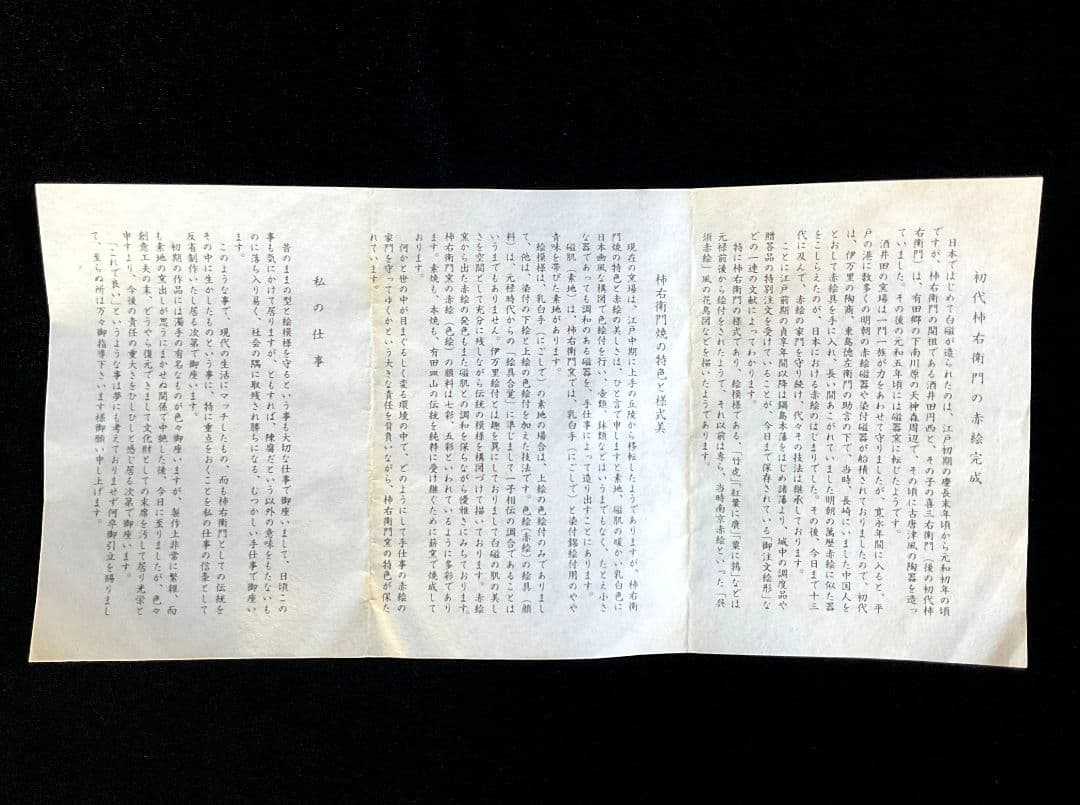 初代柿右衛門の赤絵完成
日本ではじめて白磁が造られたのは、江戸初期の慶長末年頃から元和初年の頃
ですが、柿右衛門の開祖である酒井田円西と、その子の喜三右衛門(後の初代柿
右衛門)は、有田郷の下南川原の天神森周辺で、その頃に古唐津風の陶器を造っ
ていました。その後の元和五年頃には磁器窯に転じたようです。
酒井田の窯場は一門一族が力をあわせて守りましたが、寛永年間に入ると、平
戸の港に数多くの明朝の赤絵磁器や染付磁器が船積されておりましたので、初代
は、伊万里の陶商、東島徳左衛門の助言の下で、当時、長崎にいました中国人を
とおして赤絵具を手に入れ、長い間あこがれていました明朝の萬歴赤絵に似た器
をこしらえたのが、日本における赤絵のはじまりでした。その後、今日まで十三
代に及んで、赤絵の家門を守り続け、代々その技法は継承しております。
ことに江戸前期の貞享年間以降は鍋島本藩をはじめ諸藩より、城中の調度品や
贈答品の特別注文を受けていることが、今日まで保存されている「御注文絵形」な
どの一連の文献によってわかります。
特に柿右衛門の様式であり、絵模様である、「竹虎」「紅葉に鹿」「粟に鶉」などは
元禄前後から絵付を行ったようで、それ以前は専ら、当時南京赤絵といった「呉
須赤絵」風の花鳥図などを描いたようであります。
柿右衛門焼の特色と様式美
現在の窯場は、江戸中期に上手の丘陵から移転したようでありますが、柿右衛
門焼の特色と赤絵の美しさは、ひと言で申しますと素地、磁肌の暖かい乳白色に
日本画風な構図で色絵付を行い、壷類、鉢類などはいうまでもなく、たとえ小さ
な器であっても調和のある磁器を、手仕事によって造り出すことにあります。
磁肌(素地)は、柿右衛門窯では、乳白手(にごして)と染付錦絵付用のやや
青味を帯びた素地があります。
絵模様は、乳白手(にごして)の素地の場合は、上絵の色絵付のみでありまし
て、他は、染付の下絵と上絵の色絵付を加えた技法です。色絵(赤絵)の絵具(顔
料)は、元禄時代からの「絵具合覚」に準じまして一子相伝の調合であることは
いうまでもありません。伊万里絵付とは趣を異にしておりまして白磁の肌の美し
さを空間として充分に残しながら伝統の模様を構図づけて描いております。赤絵
窯から出た赤絵の発色もまた磁肌との調和を保ちながら優雅さにみちております。
柿右衛門窯の赤絵(色絵)の顔料は七彩、五彩といわれているように多彩であり
ます。素焼も本焼も、有田皿山の伝統を純粋に受け継ぐために薪窯で焼成して
おります。
何かと世の中が目まぐるしく変る環境の中で、どのようにして手仕事の赤絵の
家門を守ってゆくかという大きな責任を背負いながら、柿右衛門窯の特色が保た
れています。
私の仕事
昔のままの型と絵模様を守るという事も大切な仕事で御座いまして、日頃この
事も気にかけて居りますが、ともすれば、陳腐だという以外の意味をもたないも
のに落ち入り易く、社会の隅に取残され勝ちになる、むつかしい手仕事で御座い
ます。
このような事で、現代の生活にマッチしたもの、而も柿右衛門としての伝統を
その中に生かしたものという事に、特に重点をおくことを私の仕事の信条として
反省制作いたし居る次第で御座います。
初期の作品には濁手の有名なものが色々御座いますが、製作上非常に繁雑、而
も素地の窯出しが思うにまかせぬ関係で中絶した後、今日に至りましたが、色々
創意工夫の末、どうやら復元できまして文化財としての末席を汚して居り光栄と
申すより、今後の責任の重大さをひしひしと感じ居る次第で御座います。
「これで良い」というような事は夢にも考えておりませず何卒御引立を賜りまし
て、至らぬ所は万々御指導下さいます様御願い申し上げます。